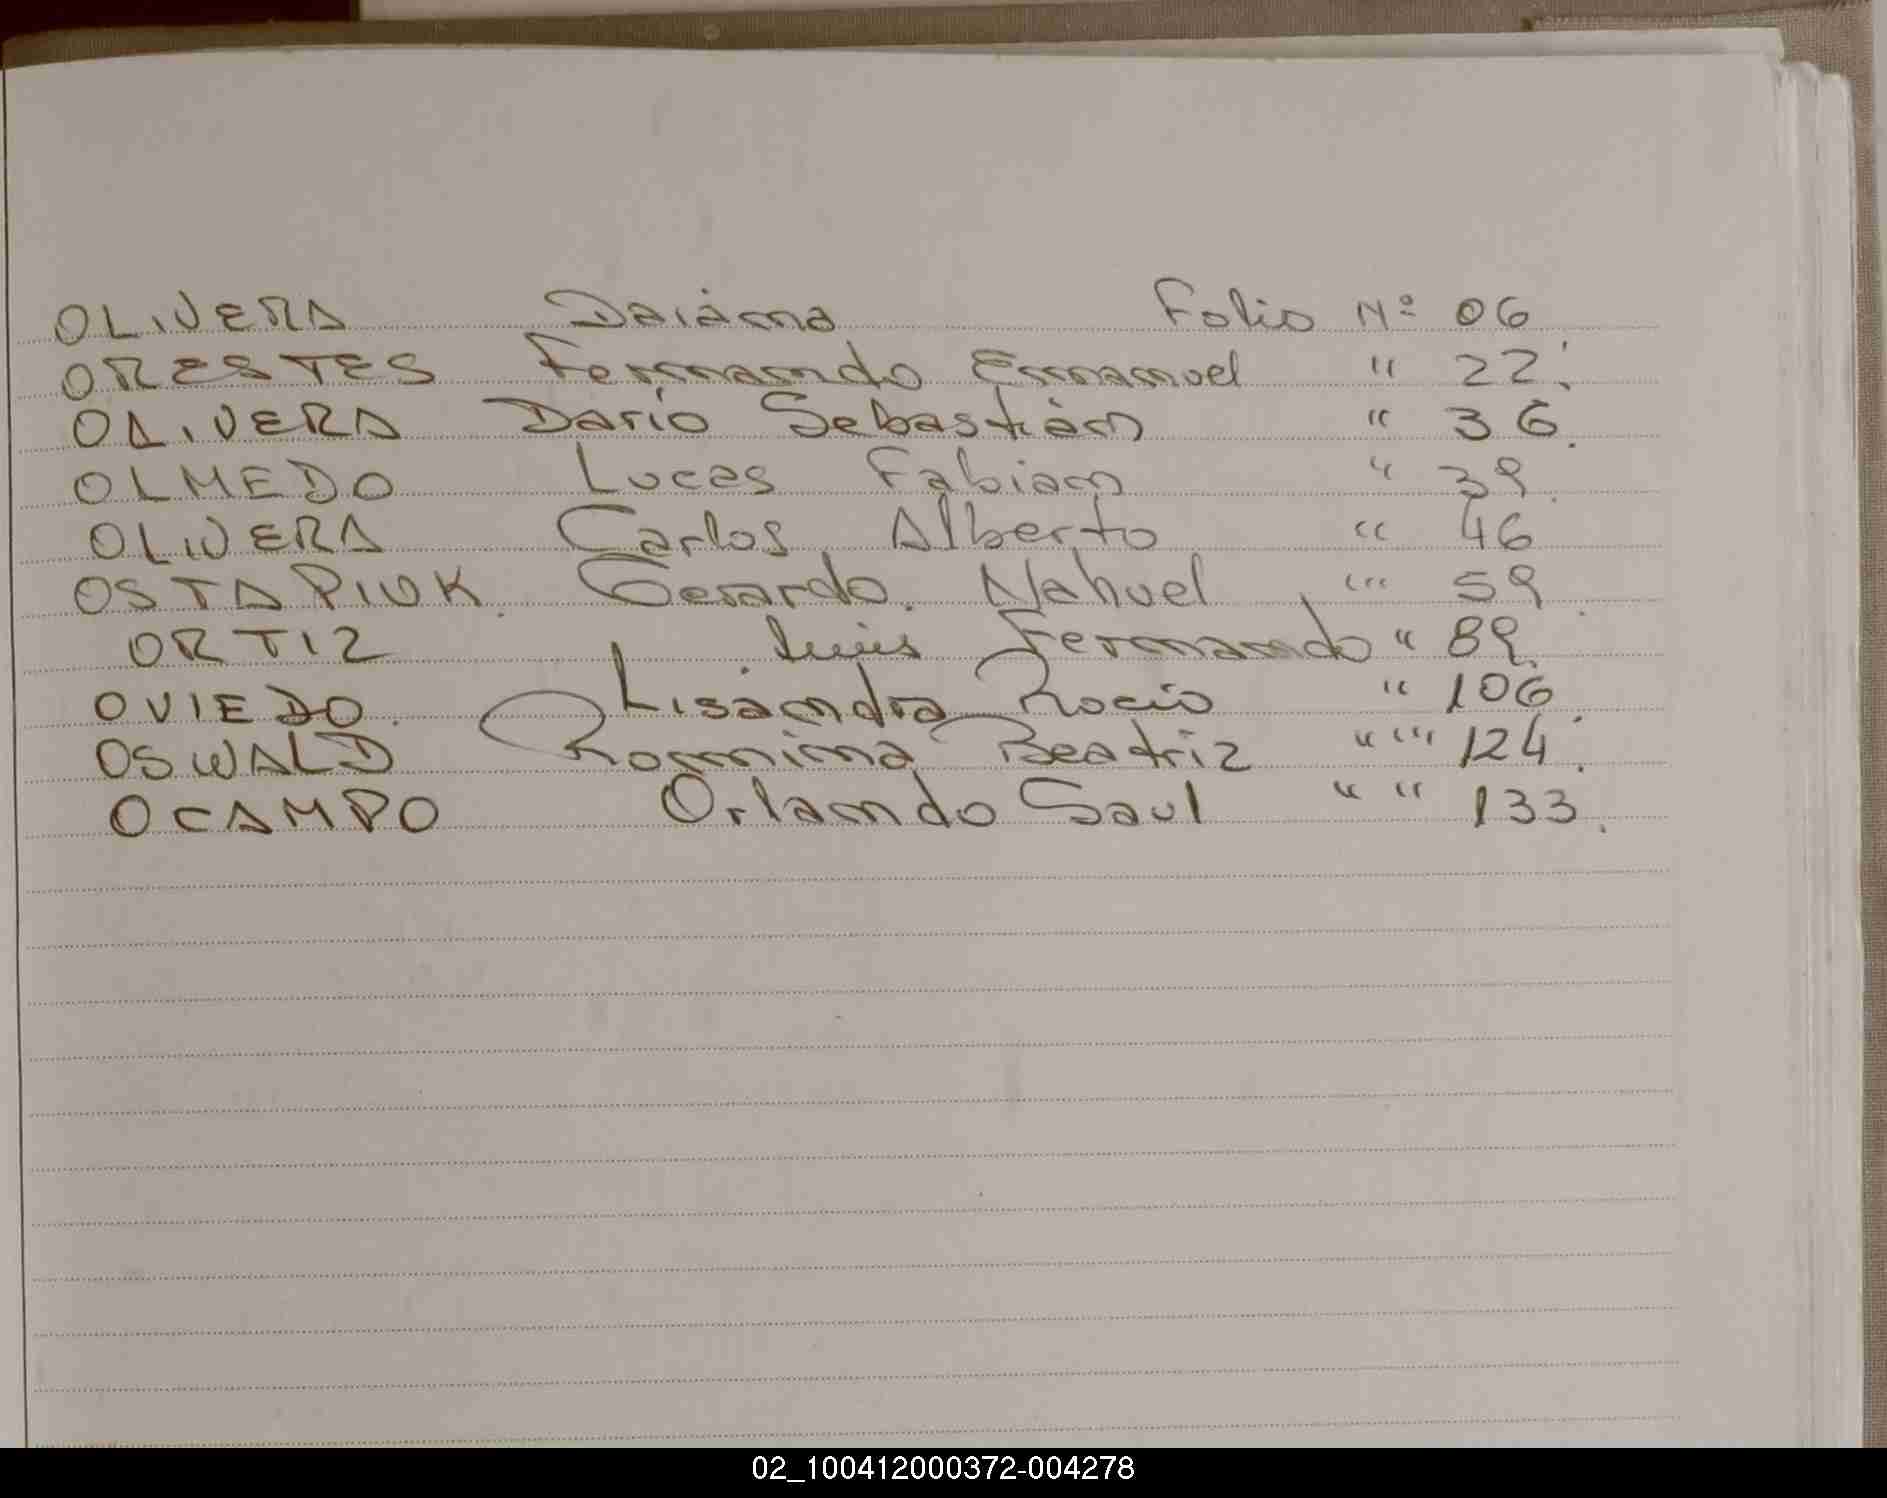 OLIVERA Daiána Folio Nº 06
ORESTES Fernando Emanuel " 22.
OLIVERA Darío Sebastián " 36.
OLMEDO Lucas Fabian " 39.
OLIVERA Carlos Alberto " 46
OSTAPIUK. Gerardo. Nahuel "' 59.
ORTIZ Luis Fernando " 89.
OVIEDO. Lisándra Rocío " 106.
OSWALD Romina Beatriz " "' 124.
OCAMPO Orlando Saul " " 133.
02_100412000372-004278